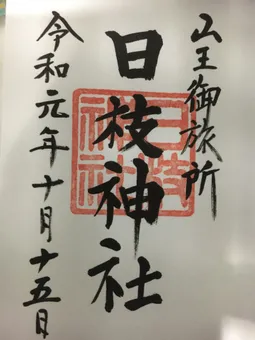 山王御旅所
日枝神社
令和元年十月十五日
日枝神社